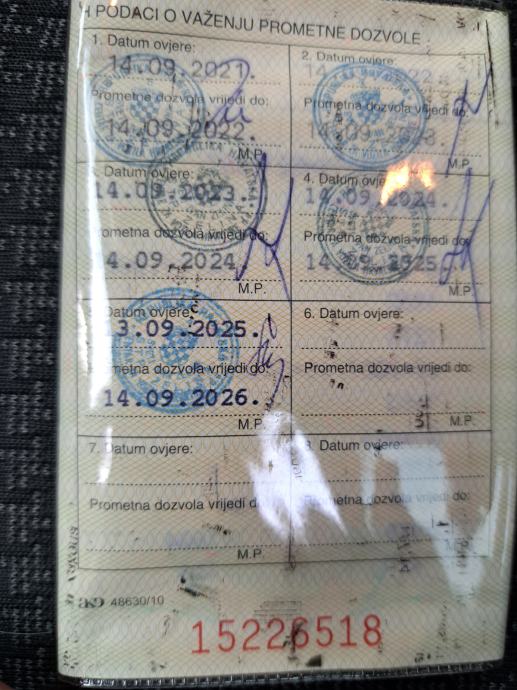 H PODACI O VAŽENJU PROMETNE DOZVOLE
1. Datum ovjere:
14.09.2021.
Prometna dozvola vrijedi do:
14.09.2022.
M.P.
2. Datum ovjere:
14.09.2022.
Prometna dozvola vrijedi do:
14.09.2023.
M.P.
3. Datum ovjere:
14.09.2023.
Prometna dozvola vrijedi do:
14.09.2024.
M.P.
4. Datum ovjere:
14.09.2024.
Prometna dozvola vrijedi do:
14.09.2025.
M.P.
5. Datum ovjere:
13.09.2025.
Prometna dozvola vrijedi do:
14.09.2026.
M.P.
6. Datum ovjere:
Prometna dozvola vrijedi do:
M.P.
7. Datum ovjere:
Prometna dozvola vrijedi do:
M.P.
8. Datum ovjere:
Prometna dozvola vrijedi do:
48630/10
15226518